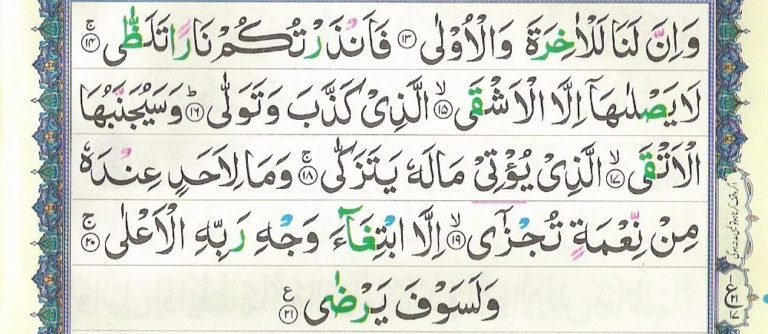 وَاِنَّ لَنَا لَلْاٰخِرَةَ وَالْاُوْلٰى ﴿۱۳﴾ فَاَنْذَرْتُكُمْ نَارًا تَلَظّٰى ۚ﴿۱۴﴾
لَا يَصْلٰىهَاۤ اِلَّا الْاَشْقَى ۙ﴿۱۵﴾ الَّذِىْ كَذَّبَ وَتَوَلّٰى ؕ﴿۱۶﴾ وَسَيُجَنَّبُهَا
الْاَتْقَى ۙ﴿۱۷﴾ الَّذِىْ يُؤْتِىْ مَالَهٗ يَتَزَكّٰى ۚ﴿۱۸﴾ وَمَا لِاَحَدٍ عِنْدَهٗ
مِنْ نِّعْمَةٍ تُجْزٰٓى ۙ﴿۱۹﴾ اِلَّا ابْتِغَآءَ وَجْهِ رَبِّهِ الْاَعْلٰى ۚ﴿۲۰﴾
وَلَسَوْفَ يَرْضٰى ﴿۲۱﴾ ع